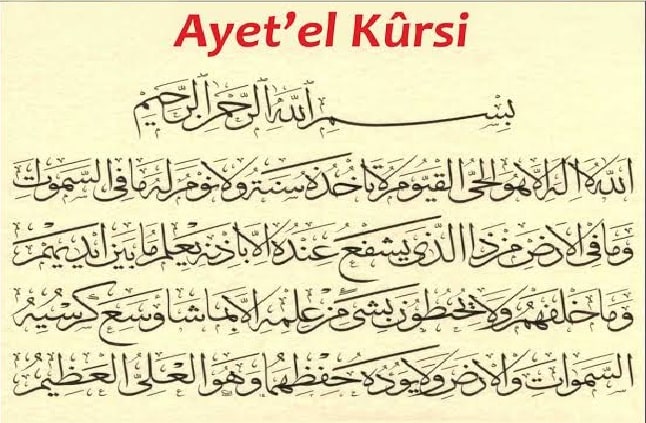 Ayet’el Kûrsi
بِسْمِ اللّٰهِ الرَّحْمٰنِ الرَّحِيمِ
اَللّٰهُ لَٓا اِلٰهَ اِلَّا هُوَ الْحَيُّ الْقَيُّومُ لَا تَأْخُذُهُ سِنَةٌ وَلَا نَوْمٌ لَهُ مَا فِي السَّمٰوَاتِ
وَمَا فِي الْاَرْضِ مَنْ ذَا الَّذِي يَشْفَعُ عِنْدَهُ اِلَّا بِاِذْنِهِ يَعْلَمُ مَا بَيْنَ اَيْدِيهِمْ
وَمَا خَلْفَهُمْ وَلَا يُحِيطُونَ بِشَيْءٍ مِنْ عِلْمِهِ اِلَّا بِمَا شَٓاءَ وَسِعَ كُرْسِيُّهُ
السَّمٰوَاتِ وَالْاَرْضَ وَلَا يَؤُدُهُ حِفْظُهُمَا وَهُوَ الْعَلِيُّ الْعَظِيمُ